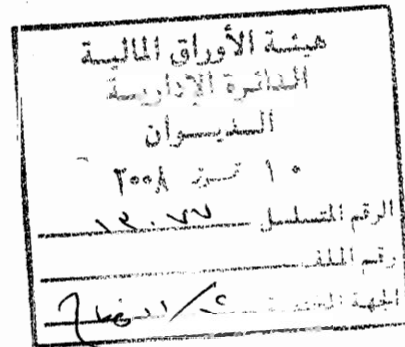 هيئة الأوراق المالية
الدائرة الإدارية
الديوان
١٠ تموز ٢٠٠٨
الرقم المتسلسل ١٣٠٧٧
رقم الملف
الجهة المختصة